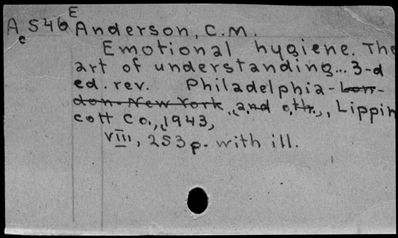 AeS46E Anderson, C.M.
Emotional hygiene. The
art of understanding... 3-d
ed. rev. Philadelphia-Lon-
don-New York, and oth., Lippin
cott Co., 1943,
VIII, 253 p. with ill.